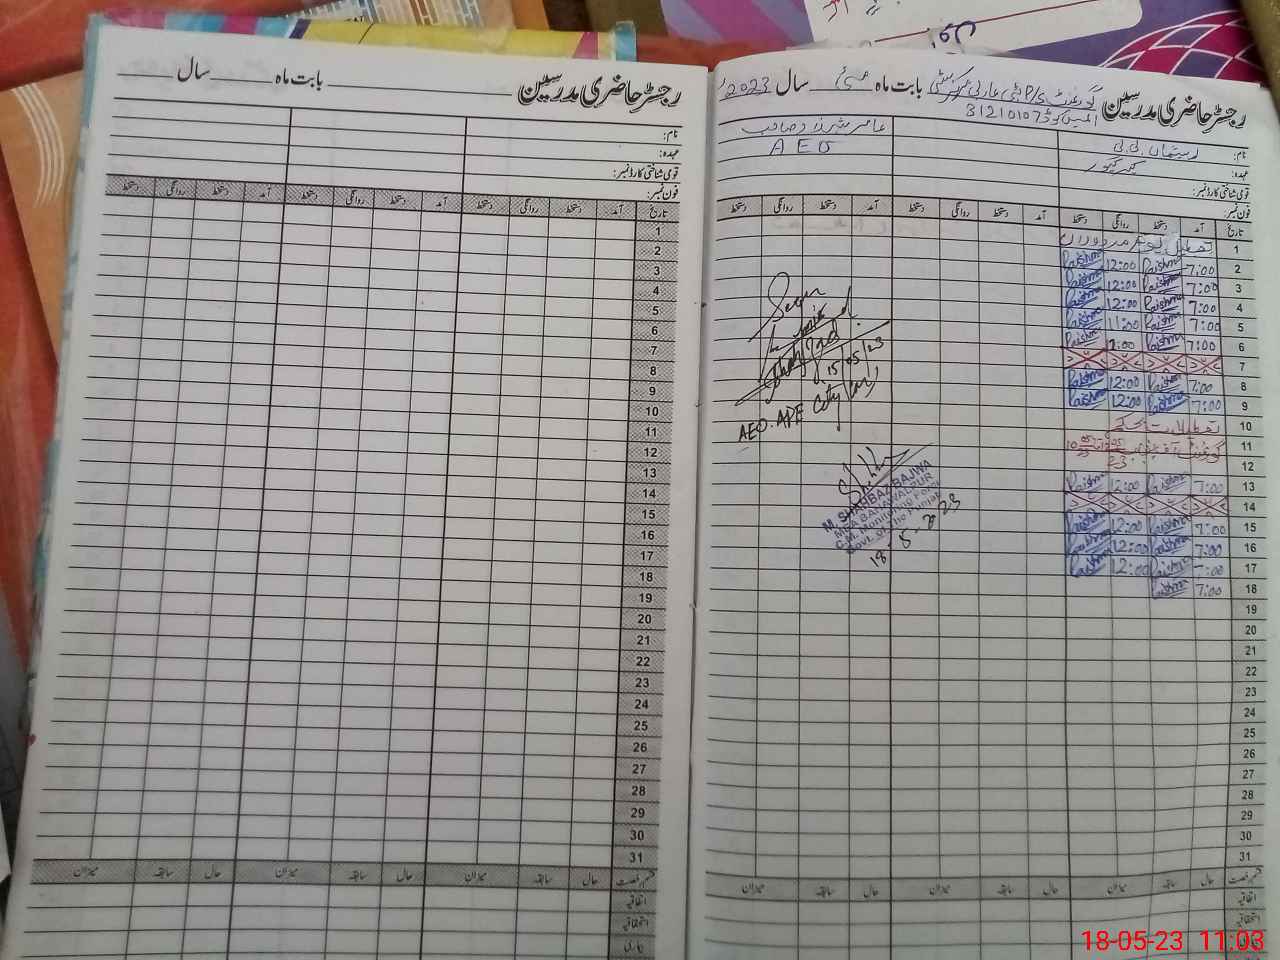 رجسٹر حاضری مدرسین بابت ماہ سال
نام:
عہدہ:
قومی شناختی کارڈ نمبر:
فون نمبر:
تاریخ آمد دستخط روانگی دستخط آمد دستخط روانگی دستخط آمد دستخط روانگی دستخط
1
2
3
4
5
6
7
8
9
10
11
12
13
14
15
16
17
18
19
20
21
22
23
24
25
26
27
28
29
30
31
قسم رخصت حال سابقہ میزان حال سابقہ میزان حال سابقہ میزان
اتفاقیہ
استحقاقیہ
بیماری
رجسٹر حاضری مدرسین گورنمنٹ P/S بابت ماہ مئی سال 2023
31210107
نام: عامر شہزاد صاحب
عہدہ: AEO
قومی شناختی کارڈ نمبر:
فون نمبر:
تاریخ آمد دستخط روانگی دستخط آمد دستخط روانگی دستخط آمد دستخط روانگی دستخط
1 تعطیل یوم مزدوراں
2 7:00 Raishma 12:00 Raishma
3 7:00 Raishma 12:00 Raishma
4 7:00 Raishma 12:00 Raishma
5 7:00 Raishma 11:00 Raishma
6 7:00 Raishma 12:00 Raishma
7
8 7:00 Raishma 12:00 Raishma
9 7:00 Raishma 12:00 Raishma
10
11
12
13 7:00 Raishma 12:00 Raishma
14
15 7:00 Raishma 12:00 Raishma
16 7:00 Raishma 12:00 Raishma
17 7:00 Raishma 12:00 Raishma
18 7:00 Raishma
19
20
21
22
23
24
25
26
27
28
29
30
31
Seen
15/05/23
AEO.
City
M. SHAHBAZ BAJWA
MEA BAHAWALPUR
C.M. Monitoring Force
Govt. of The Punjab
18-5-2023
قسم رخصت حال سابقہ میزان حال سابقہ میزان حال سابقہ میزان
اتفاقیہ
استحقاقیہ
18-05-23 11:03